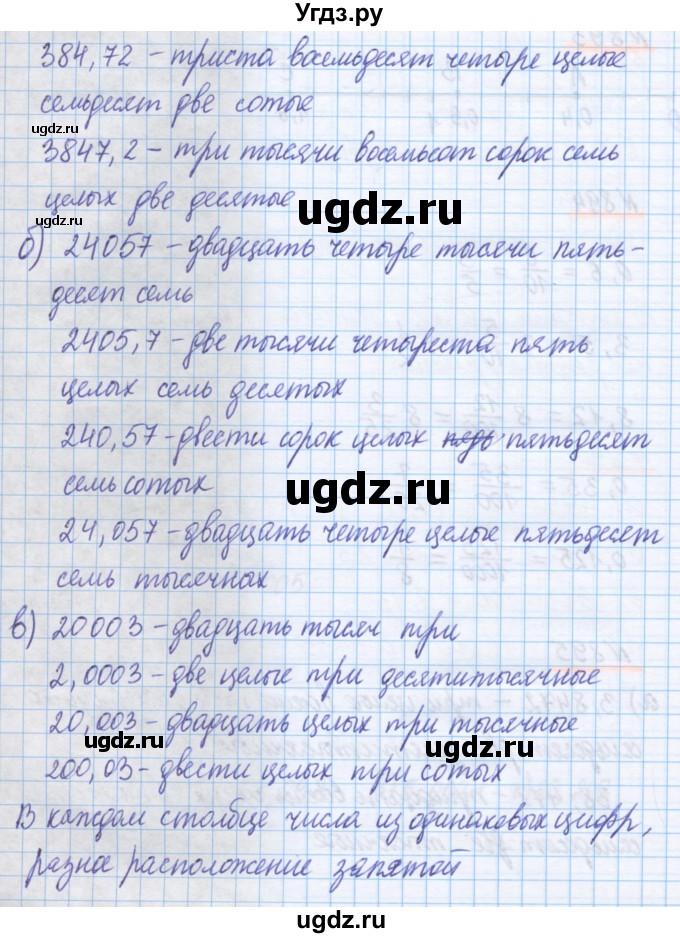 Угдз.ру
384,72 - триста восемьдесят четыре целые
семьдесят две сотые
ugdz.ru
3847,2 - три тысячи восемьсот сорок семь
целых две десятые
ugdz.ru
ugdz.ru
б) 24057 - двадцать четыре тысячи пять-
десят семь
2405,7 - две тысячи четыреста пять
целых семь десятых
240,57 - двести сорок целых пятьдесят
семь сотых
ugdz.ru
24,057 - двадцать четыре целые пятьдесят
семь тысячных
в) 20003 - двадцать тысяч три
2,0003 - две целые три десятитысячные
20,003 - двадцать целых три тысячные
ugdz.ru
ugdz.ru
200,03 - двести целых три сотых
В каждом столбце числа из одинаковых цифр,
разное расположение запятой
ugdz.ru
ugdz.ru